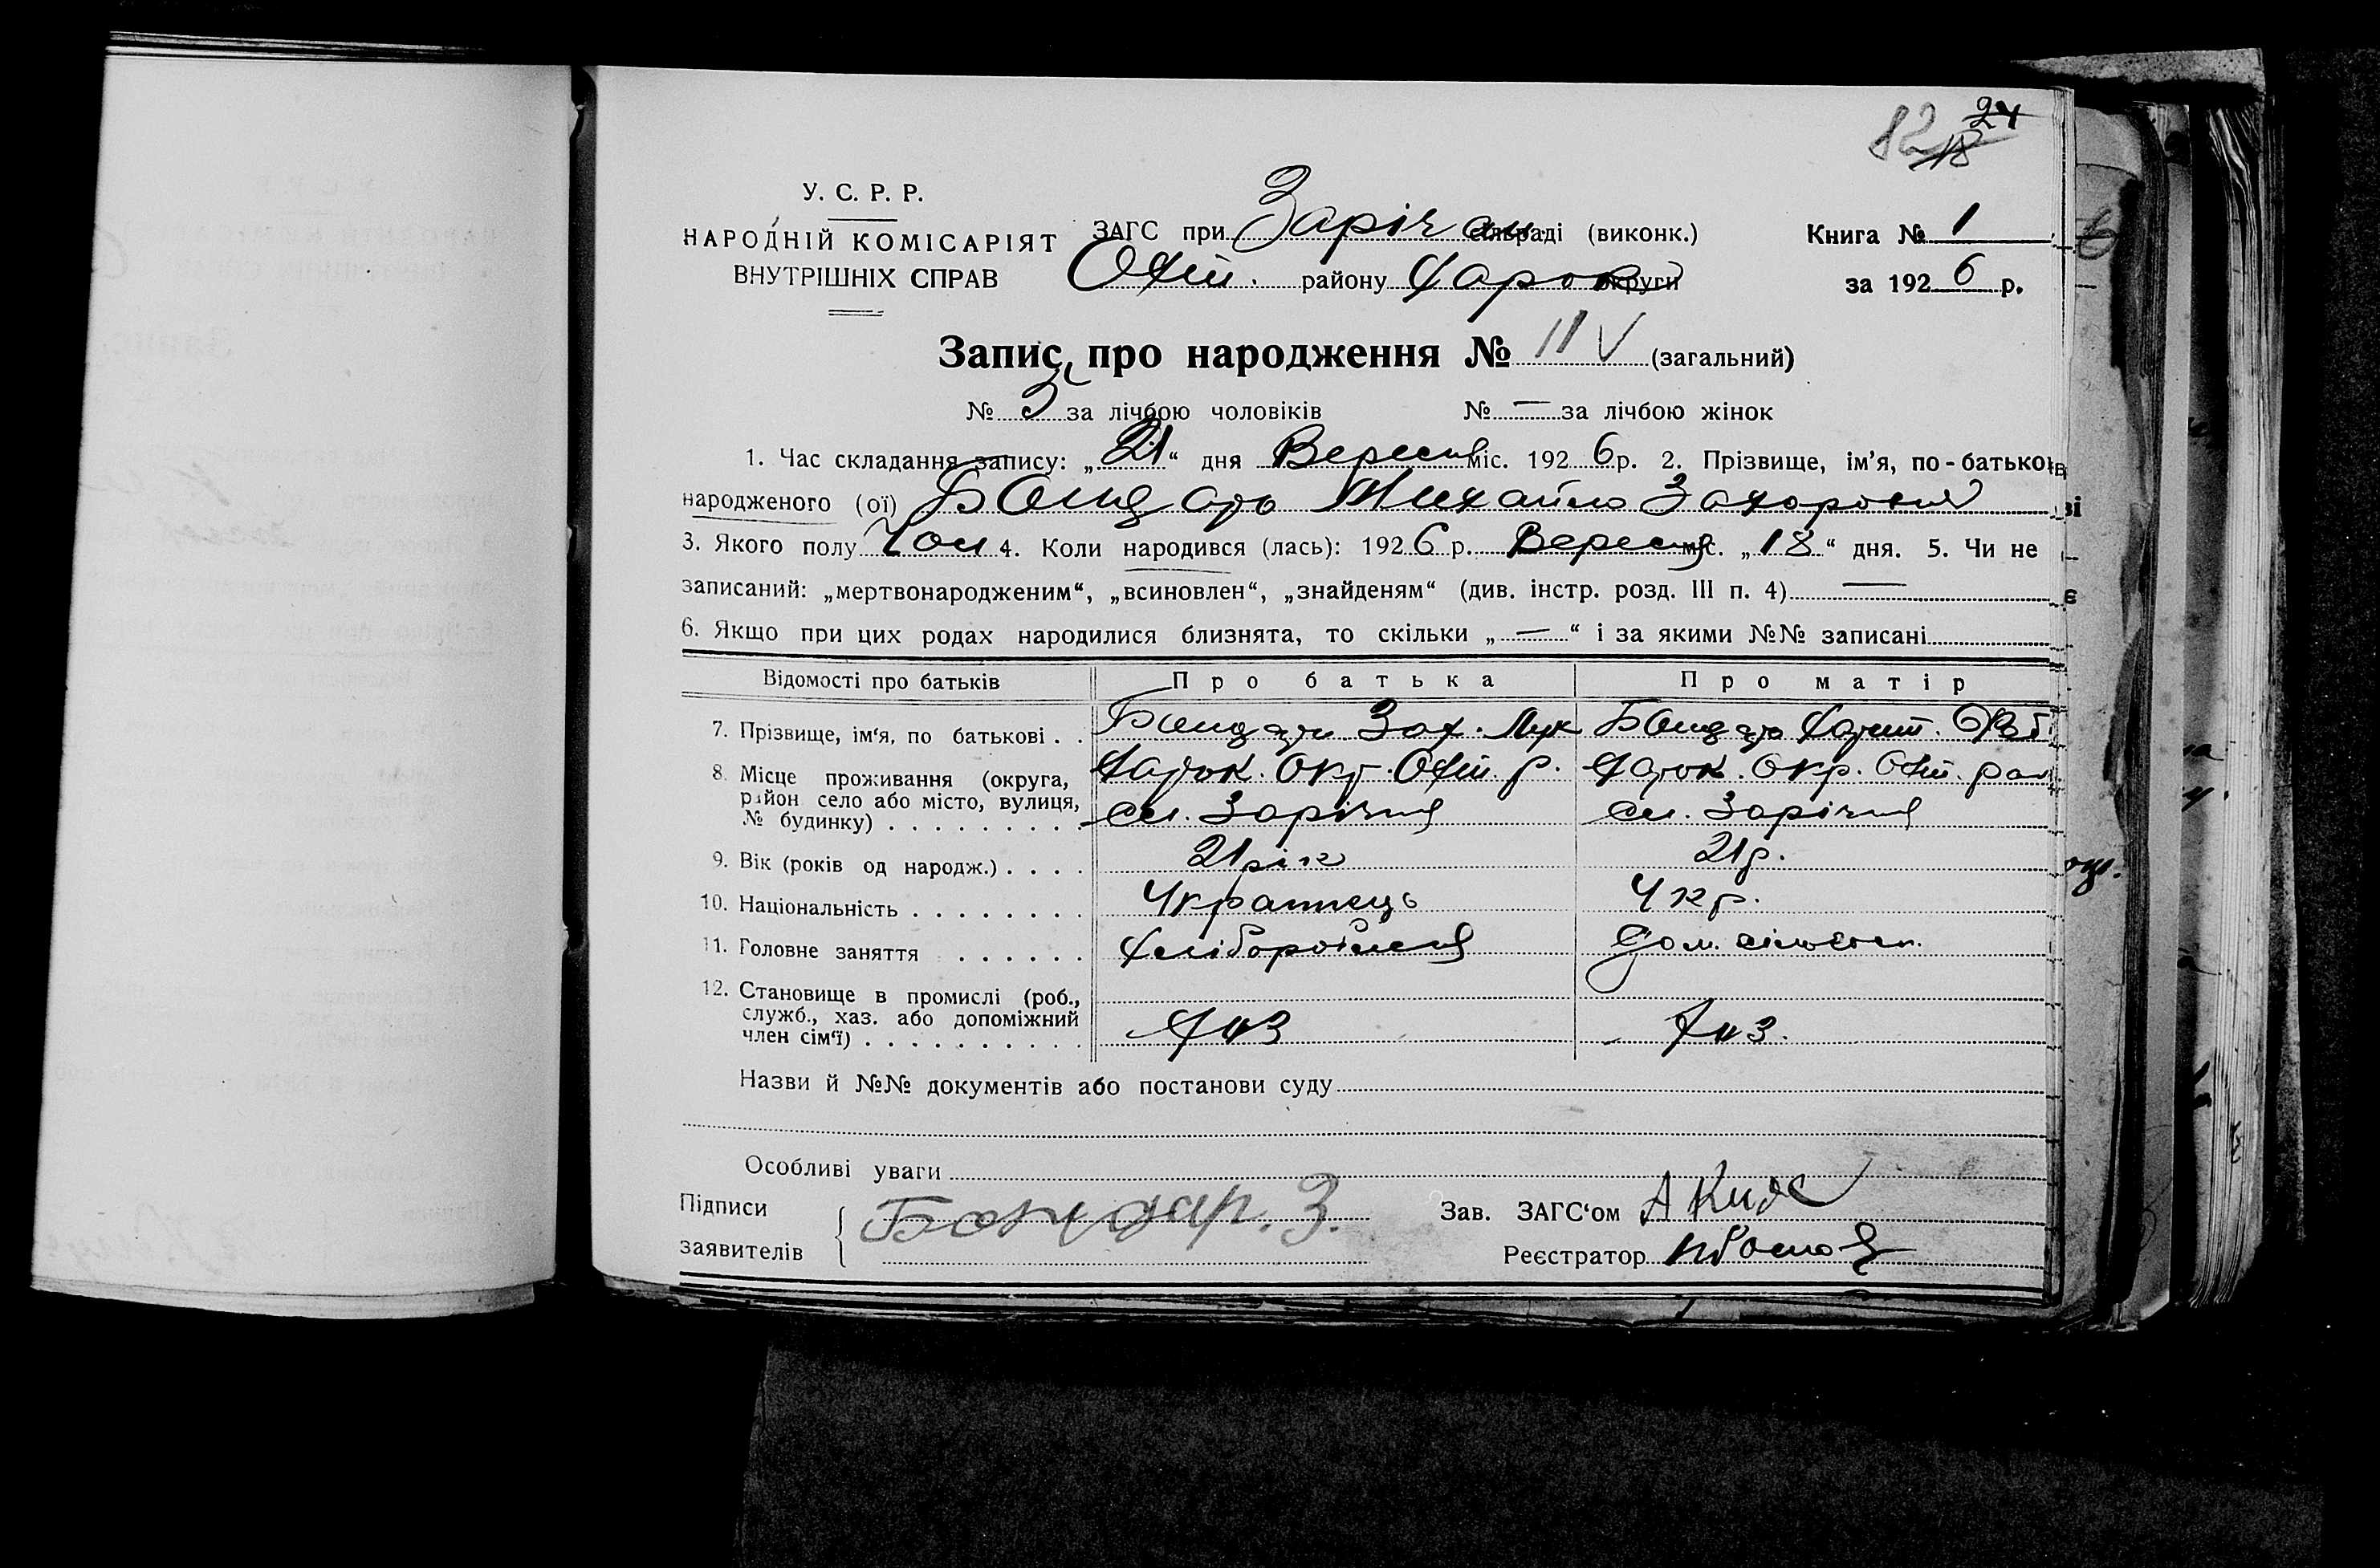 24
82 18
У. С. Р. Р.
НАРОДНІЙ КОМІСАРІЯТ
ВНУТРІШНІХ СПРАВ
ЗАГС при Зарічан сільраді (виконк.)
Охт. району Харок округи
Книга № 1
за 1926 р.
Запис про народження № 11 V (загальний)
№ 3 за лічбою чоловіків № — за лічбою жінок
1. Час складання запису: „21“ дня Вересня міс. 1926 р. 2. Прізвище, ім’я, по-батькові
народженого (ої) Бондарь Михайло Захоровия
3. Якого полу Чол 4. Коли народився (лась): 1926 р. Вересня міс. „18“ дня. 5. Чи не
записаний: „мертвонародженим“, „всиновлен“, „знайденям“ (див. інстр. розд. III п. 4) —
6. Якщо при цих родах народилися близнята, то скільки „—“ і за якими №№ записані
Відомості про батьків Про батька Про матір
7. Прізвище, ім‘я, по батькові . . Бондарь Зах. Лук Бондарь Харит.
8. Місце проживання (округа, Харок. Окр. Охт. р. Харок. Окр. Охт. рай
район село або місто, вулиця,
№ будинку) . . . . . . . . . сл. Зарічня сл. Зарічня
9. Вік (років од народж.) . . . . 21 рік 21 р.
10. Національність . . . . . . . . Українець Укр.
11. Головне заняття . . . . . . Хліборобсня Дом. сільгосп.
12. Становище в промислі (роб.,
служб., хаз. або допоміжний
член сім‘ї) . . . . . . . . . . Хаз Хаз.
Назви й №№ документів або постанови суду
Особливі уваги
Підписи
заявителів
Бондар. З.
Зав. ЗАГС‘ом
Реєстратор